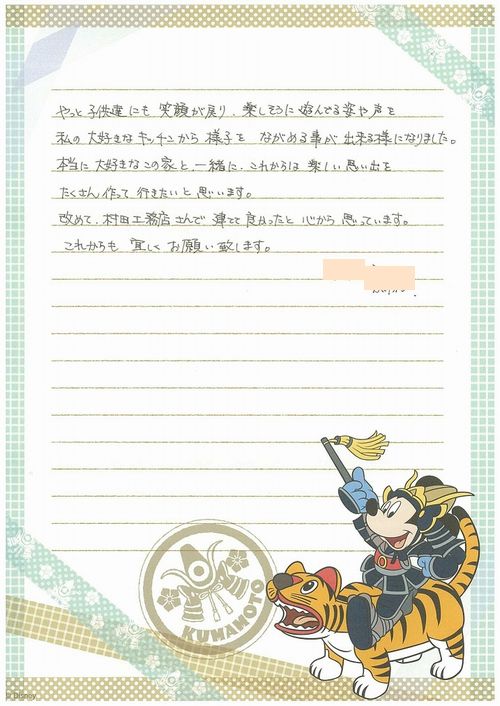 やっと子供達にも笑顔が戻り、楽しそうに遊んでる姿や声を
私の大好きなキッチンから様子をながめる事が出来る様になりました。
本当に大好きなこの家と一緒に、これからは楽しい思い出を
たくさん作って行きたいと思います。
改めて、村田工務店さんで建てて良かったと心から思っています。
これからも宜しくお願い致します。
KUMAMOTO
© Disney